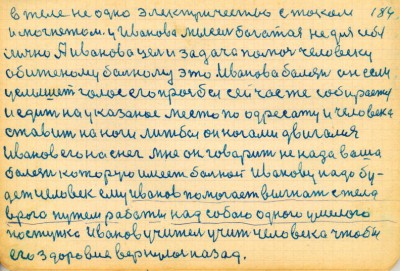 в теле не одно электричество с током 184
и могнотом. у Иванова милеен богатая не для себя
лично А иванова цел и задача помоч человеку
обиженому болному это Иванова болян он если
услышет голос его прозбы сейчасте собираеты
и едит на указаное место по адресату и человека
ставит на ноги литбы он ногами двигался
Иванов его на снег мне он говорит не нада ваша
болезн которую имеет болной Иванову надо бу-
дет человек ему Иванов помогает выгнат с тела
врого путем работы над собою одного умелого
поступка Иванов учител учит человека чтобы
его здоровие вернулос назад.